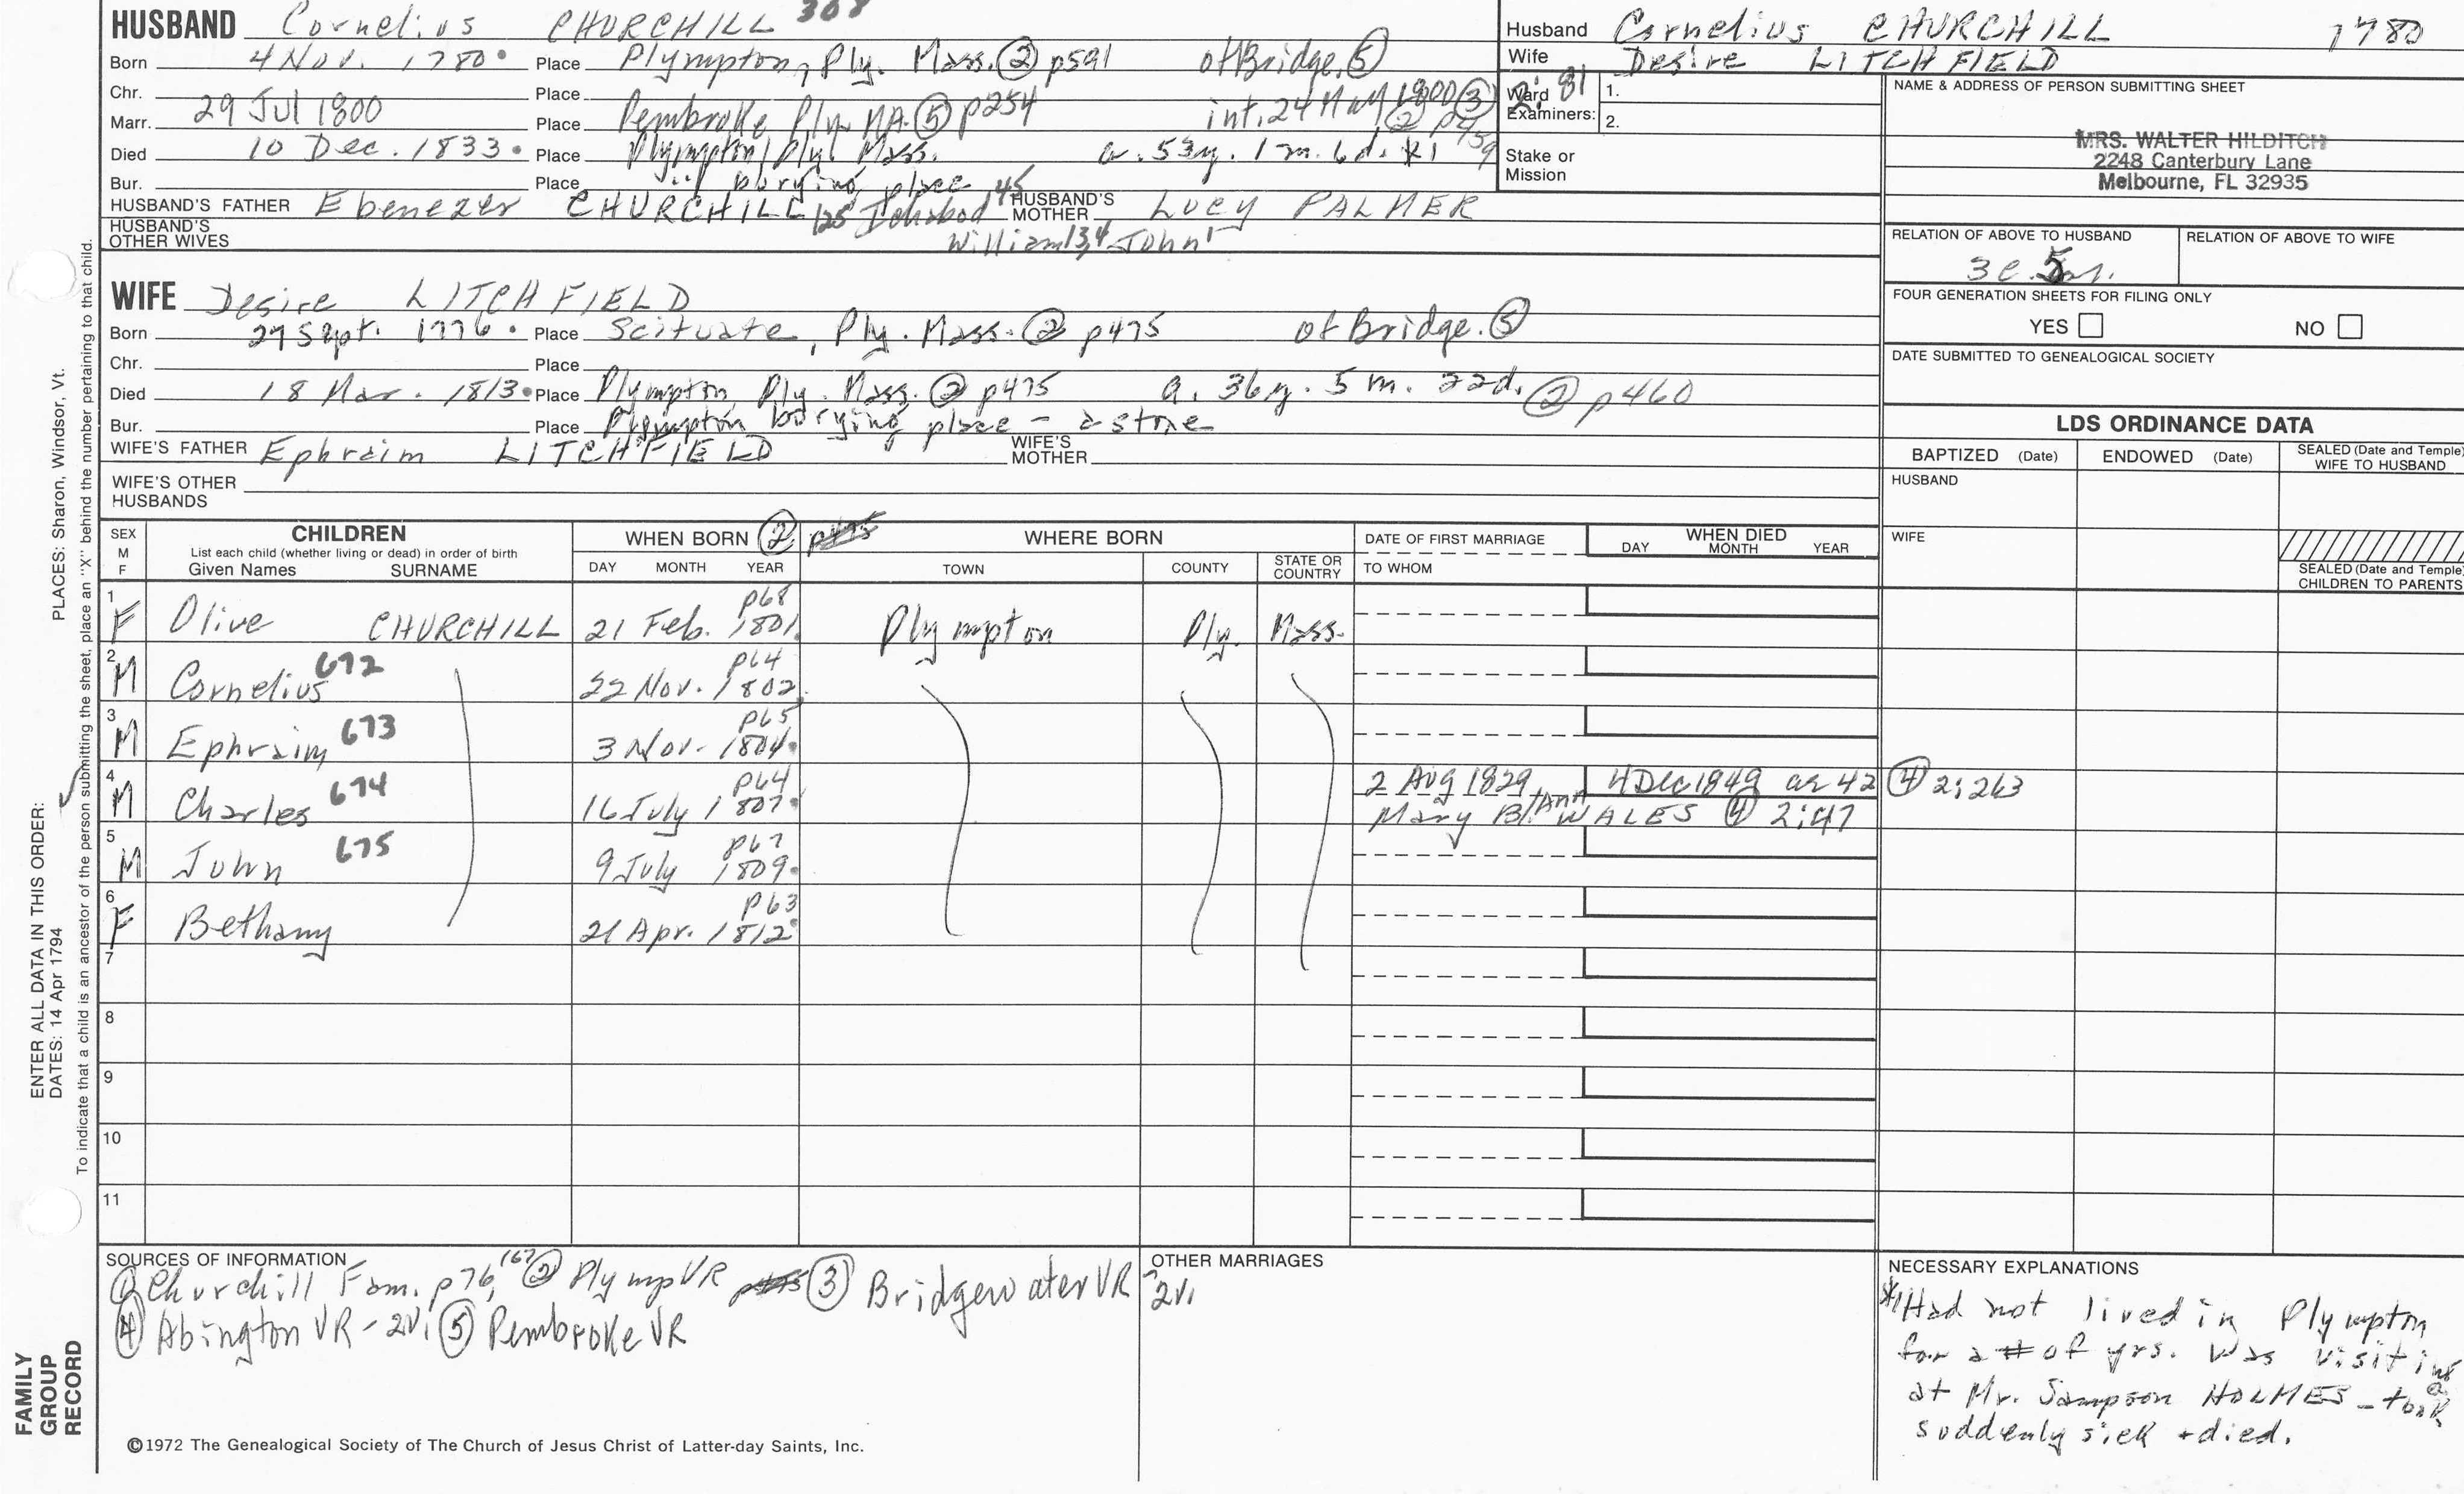 HUSBAND Cornelius CHURCHILL 308
Born 4 Nov. 1780 Place Plympton, Ply. Mass. ② p591 of Bridge. ⑤
Chr. Place
Marr. 29 Jul 1800 Place Pembroke, Ply. MA. ⑤ p254 int. 24 May 1800 ③ 2:81
② p459
Died 10 Dec. 1833 Place Plympton, Ply. Mass. a. 53y. 1m. 6d. *1
Bur. Place burying place
HUSBAND'S FATHER Ebenezer CHURCHILL 125 Ichabod 45 HUSBAND'S MOTHER Lucy PALMER
HUSBAND'S OTHER WIVES William 13,4 John 1
WIFE Desire LITCHFIELD
Born 27 Sept. 1776 Place Scituate, Ply. Mass. ② p475 of Bridge. ⑤
Chr. Place
Died 18 Mar. 1813 Place Plympton, Ply. Mass. ② p475 a. 36y. 5m. 22d. ② p460
Bur. Place Plympton burying place - a stone
WIFE'S FATHER Ephraim LITCHFIELD WIFE'S MOTHER
WIFE'S OTHER HUSBANDS
Husband Cornelius CHURCHILL 1780
Wife Desire LITCHFIELD
Ward 1.
Examiners: 2.
Stake or Mission
NAME & ADDRESS OF PERSON SUBMITTING SHEET
MRS. WALTER HILDITCH
2248 Canterbury Lane
Melbourne, FL 32935
RELATION OF ABOVE TO HUSBAND RELATION OF ABOVE TO WIFE
3c. 5
FOUR GENERATION SHEETS FOR FILING ONLY
YES NO
DATE SUBMITTED TO GENEALOGICAL SOCIETY
LDS ORDINANCE DATA
BAPTIZED (Date) ENDOWED (Date) SEALED (Date and Temple) WIFE TO HUSBAND
HUSBAND
WIFE
SEALED (Date and Temple) CHILDREN TO PARENTS
SEX M F CHILDREN WHEN BORN ② p475 WHERE BORN DATE OF FIRST MARRIAGE WHEN DIED
List each child (whether living or dead) in order of birth
Given Names SURNAME DAY MONTH YEAR TOWN COUNTY STATE OR COUNTRY TO WHOM DAY MONTH YEAR
1 F Olive CHURCHILL 21 Feb. 1801 p68 Plympton Ply. Mass.
2 M Cornelius 672 22 Nov. 1802 p64
3 M Ephraim 673 3 Nov. 1804 p65
4 M Charles 674 16 July 1807 p64 2 Aug 1829 4 Dec 1849 ae 42 ④ 2:263
Mary B/Ann WALES ④ 2:47
5 M John 675 9 July 1809 p67
6 F Bethany 21 Apr. 1812 p63
7
8
9
10
11
SOURCES OF INFORMATION
① Churchill Fam. p76, 167 ② Plymp VR p475 ③ Bridgewater VR - 2v;
④ Abington VR - 2v; ⑤ Pembroke VR
OTHER MARRIAGES
NECESSARY EXPLANATIONS
*1 Had not lived in Plympton
for a # of yrs. Was visiting
at Mr. Sampson HOLMES - took
suddenly sick + died.
©1972 The Genealogical Society of The Church of Jesus Christ of Latter-day Saints, Inc.
FAMILY GROUP RECORD
ENTER ALL DATA IN THIS ORDER:
DATES: 14 Apr 1794
PLACES: Sharon, Windsor, Vt.
To indicate that a child is an ancestor of the person submitting the sheet, place an "X" behind the number pertaining to that child.